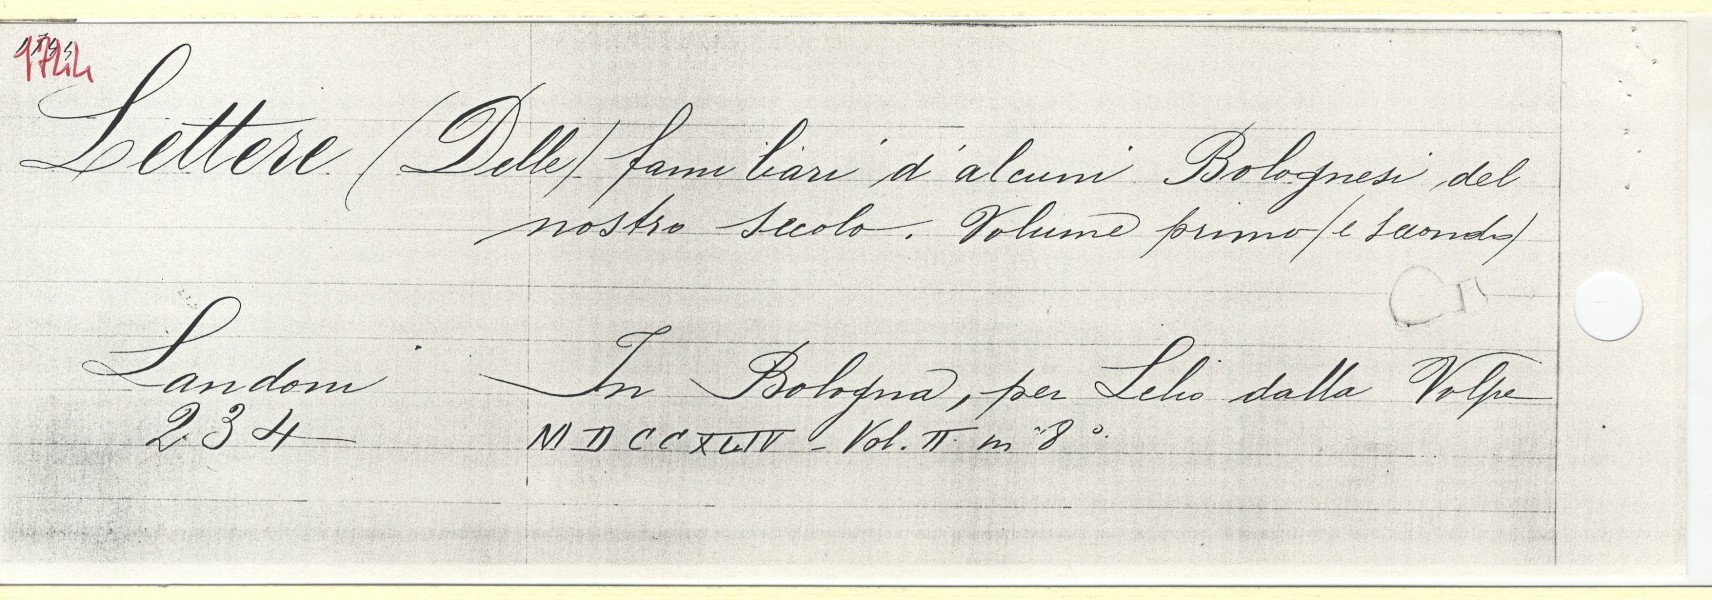 1744
Lettere (Delle) famigliari d'alcuni Bolognesi del
nostro secolo. Volume primo (e secondo)
Landoni In Bologna, per Lelio dalla Volpe
234 MDCCXLIV - Vol. II in 8°.